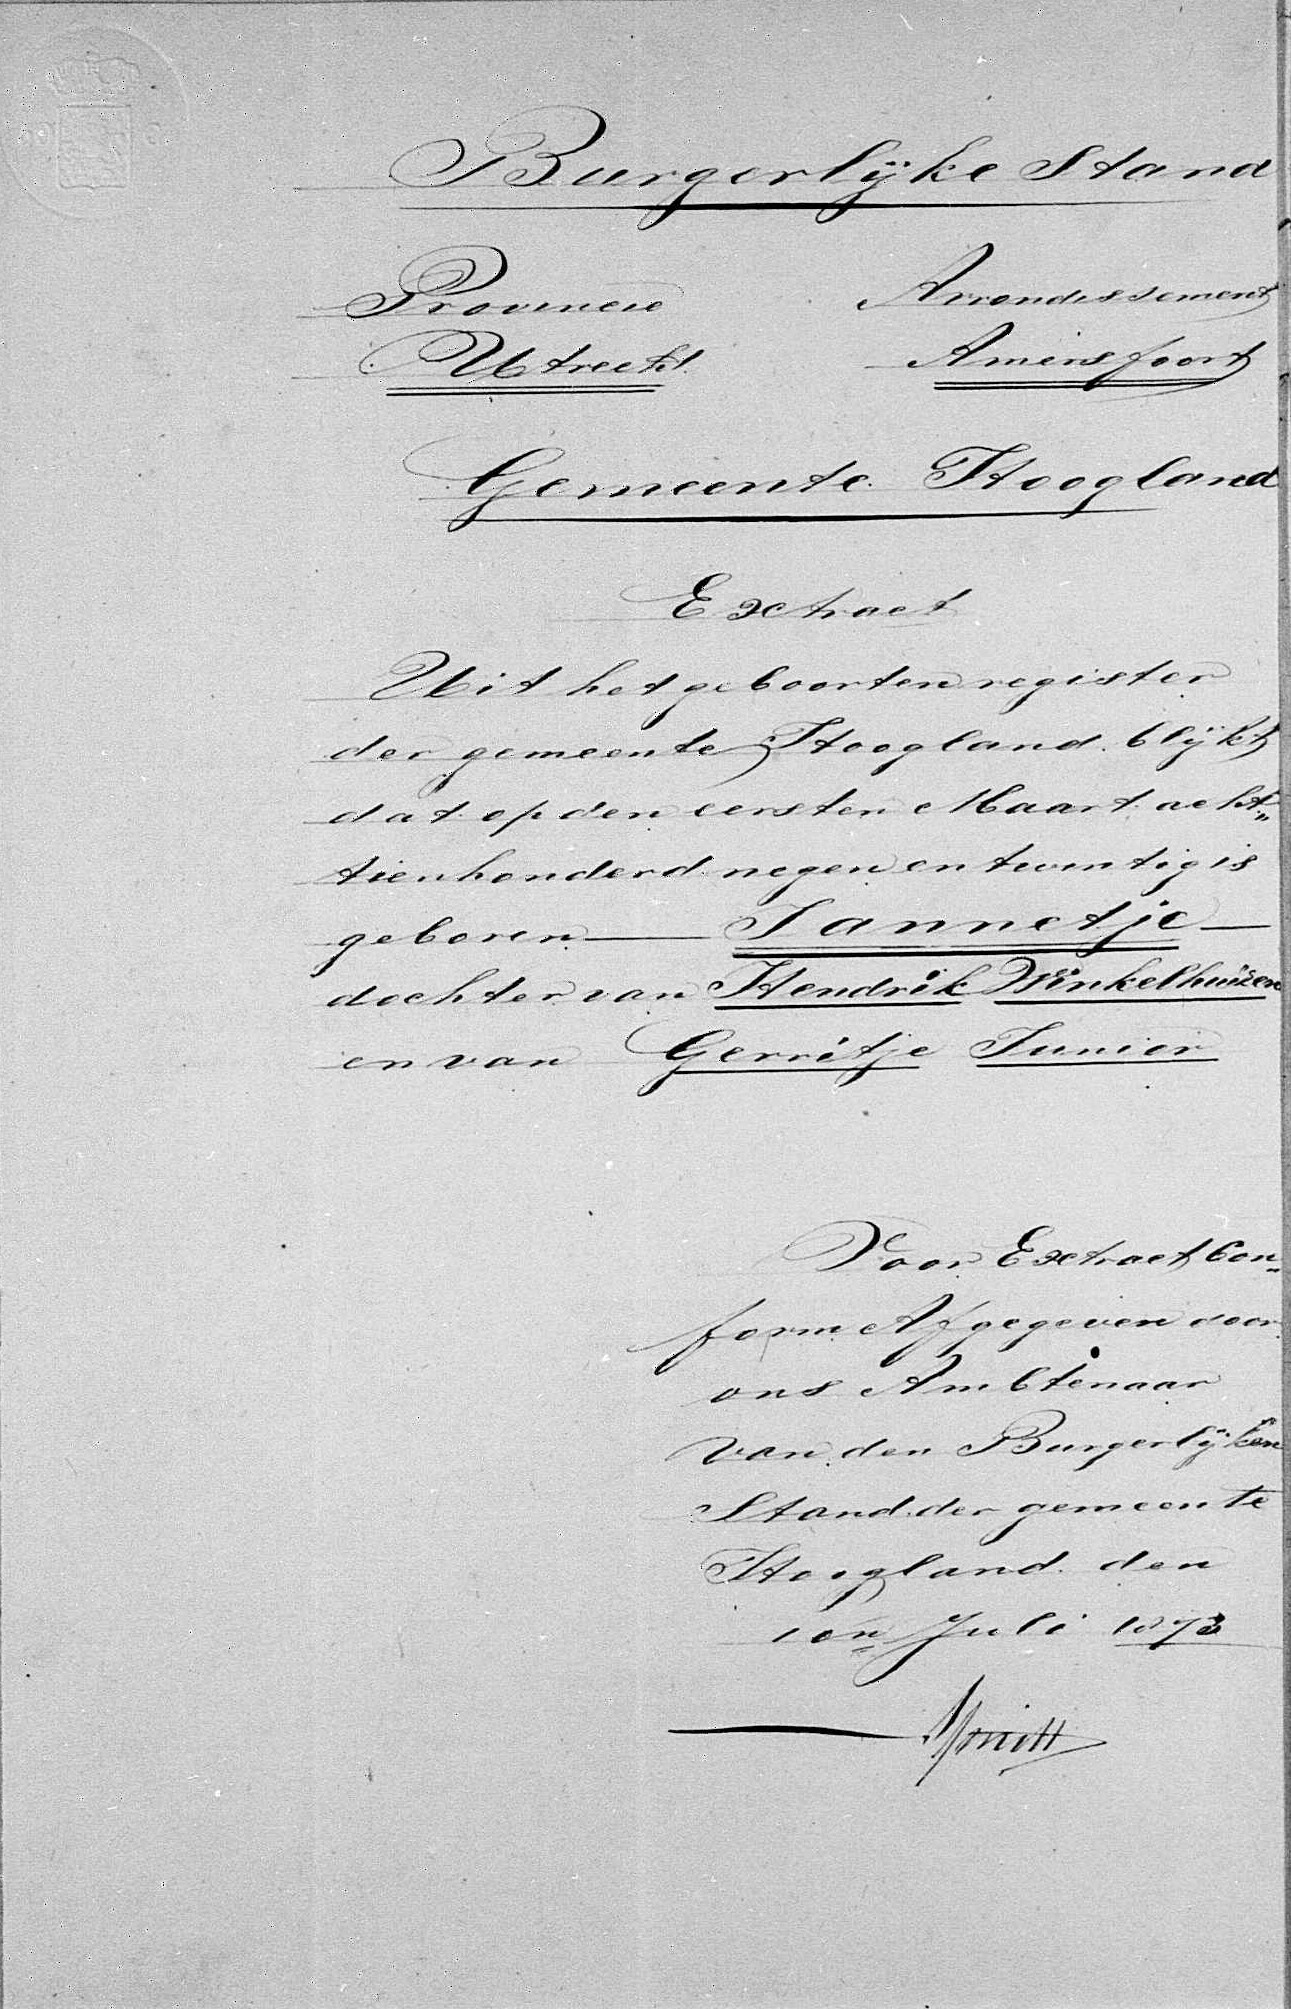 Burgerlijke Stand
Provincie Arrondissement
Utrecht Amersfoort
Gemeente Hoogland
Extract
Uit het geboorten register
der gemeente Hoogland blijkt
dat op den eersten Maart acht„
tienhonderd negen en twintig is
geboren — Jannetje —
dochter van Hendrik Winkelhuizen
en van Gerritje Junior
Voor Extract Con„
form Afgegeven door
ons Ambtenaar
van den Burgerlijken
Stand der gemeente
Hoogland den
10n Juli 1873